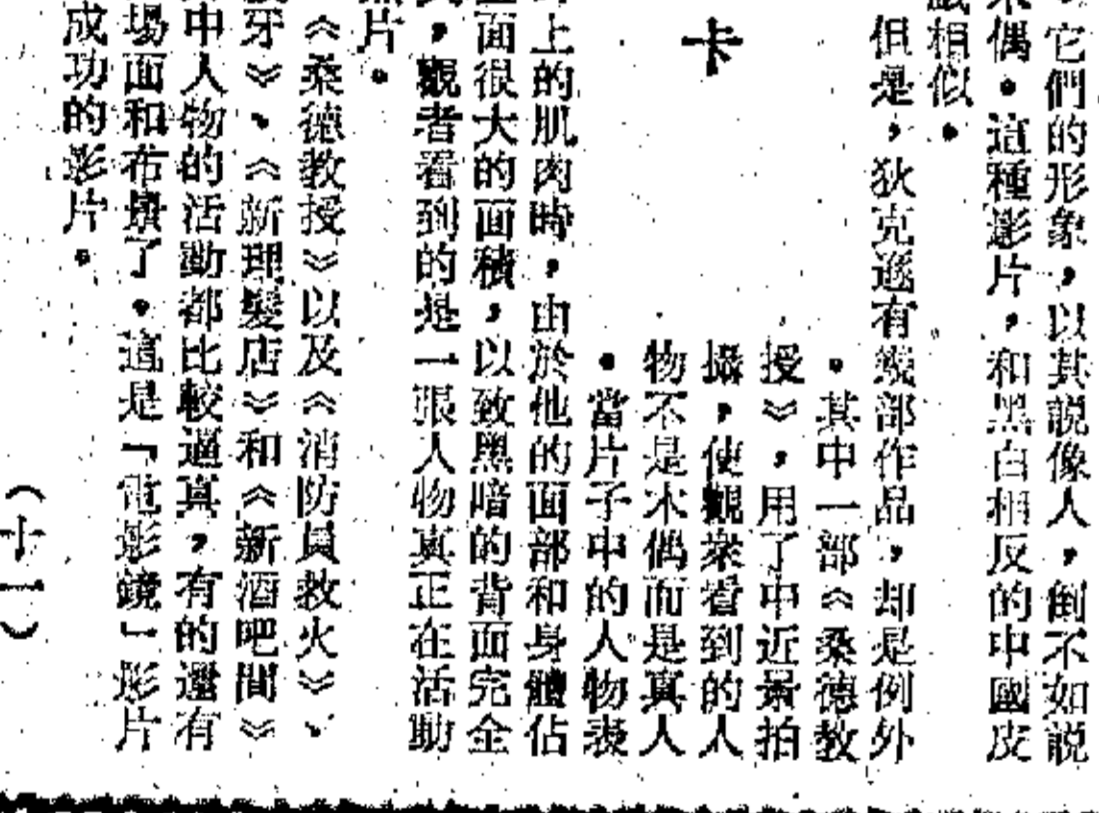 它們的形象，以其說像人，倒不如說
木偶。這種影片，和黑白相反的中國皮
戲相似。
但是，狄克遜有幾部作品，却是例外
。其中一部《桑德教
授》，用了中近景拍
攝，使觀衆看到的人
物不是木偶而是真人
。當片子中的人物表
卡
上的肌肉時，由於他的面部和身體佔
面很大的面積，以致黑暗的背面完全
，觀者看到的是一張人物真正在活動
片。
《桑德教授》以及《消防員救火》、
牙》、《新理髮店》和《新酒吧間》
中人物的活動都比較逼真，有的還有
場面和布景了。這是「電影鏡」影片
成功的影片。
（十一）